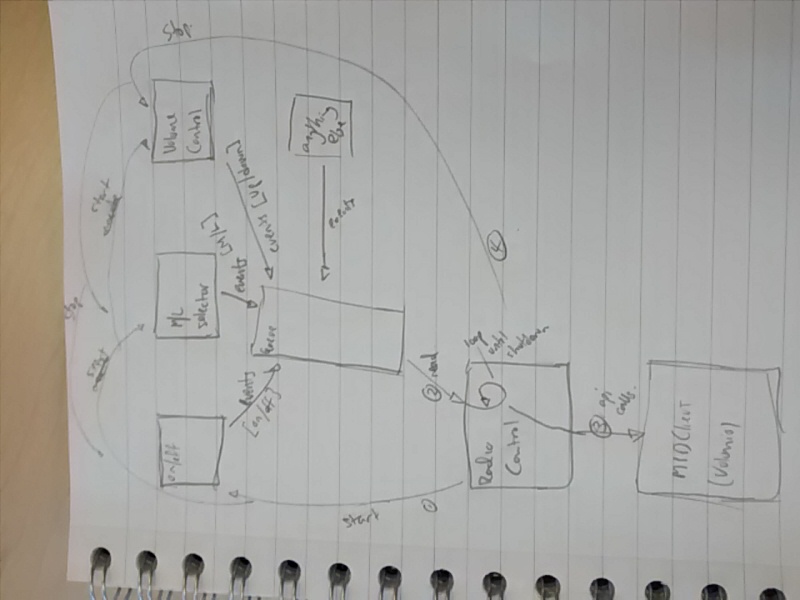 stop
start
start
stop
on/off
M/L
selector
Volume
Control
events
[on/off]
events [M/L]
events [up/down]
Queue
anything
else
events
start
1
2 read
Radio
Control
loop
until
shutdown
4
3 api
calls.
MPDClient
(Volumio)